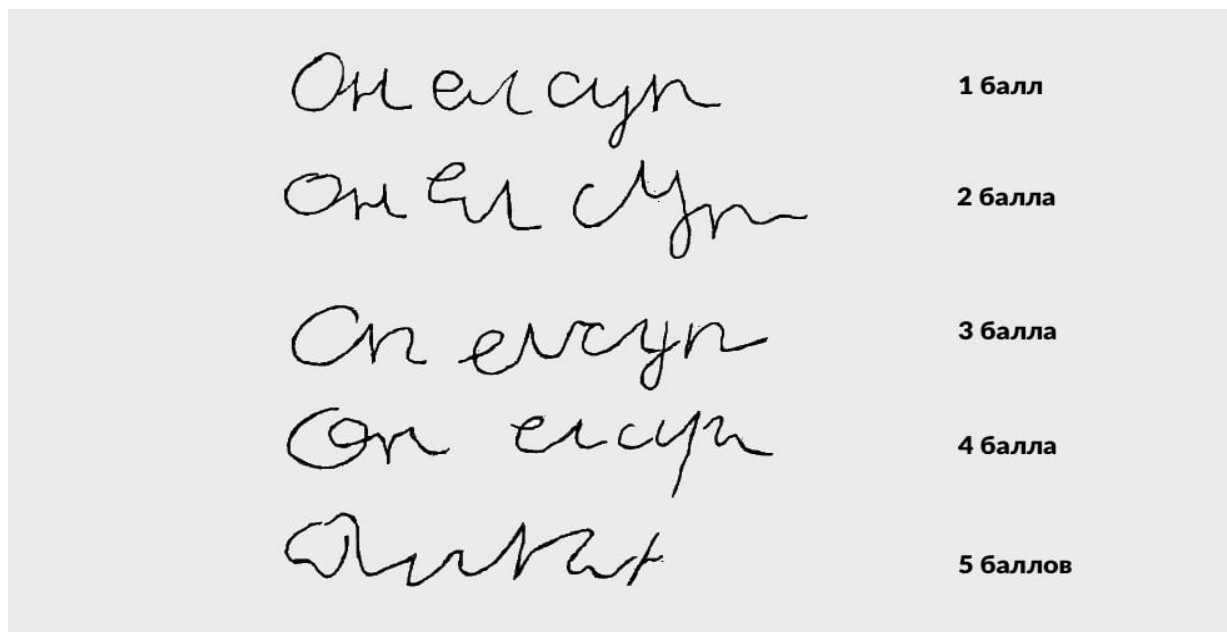 Он ел суп 1 балл
Он Ел сУп 2 балла
Оп елсуп 3 балла
Оп елсуп 4 балла
5 баллов